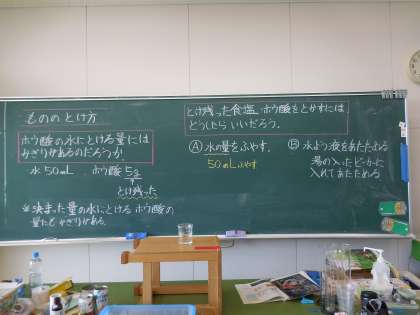 もののとけ方
ホウ酸の水にとける量には
かぎりがあるのだろうか
水 50mL ホウ酸 5g
とけ残った
※決まった量の水にとける ホウ酸の
量にもかぎりがある
とけ残った食塩、ホウ酸をとかすには
どうしたらいいだろう。
Ⓐ水の量をふやす。
50mLふやす
Ⓑ水よう液をあたためる
湯の入ったビーカーに
入れてあたためる